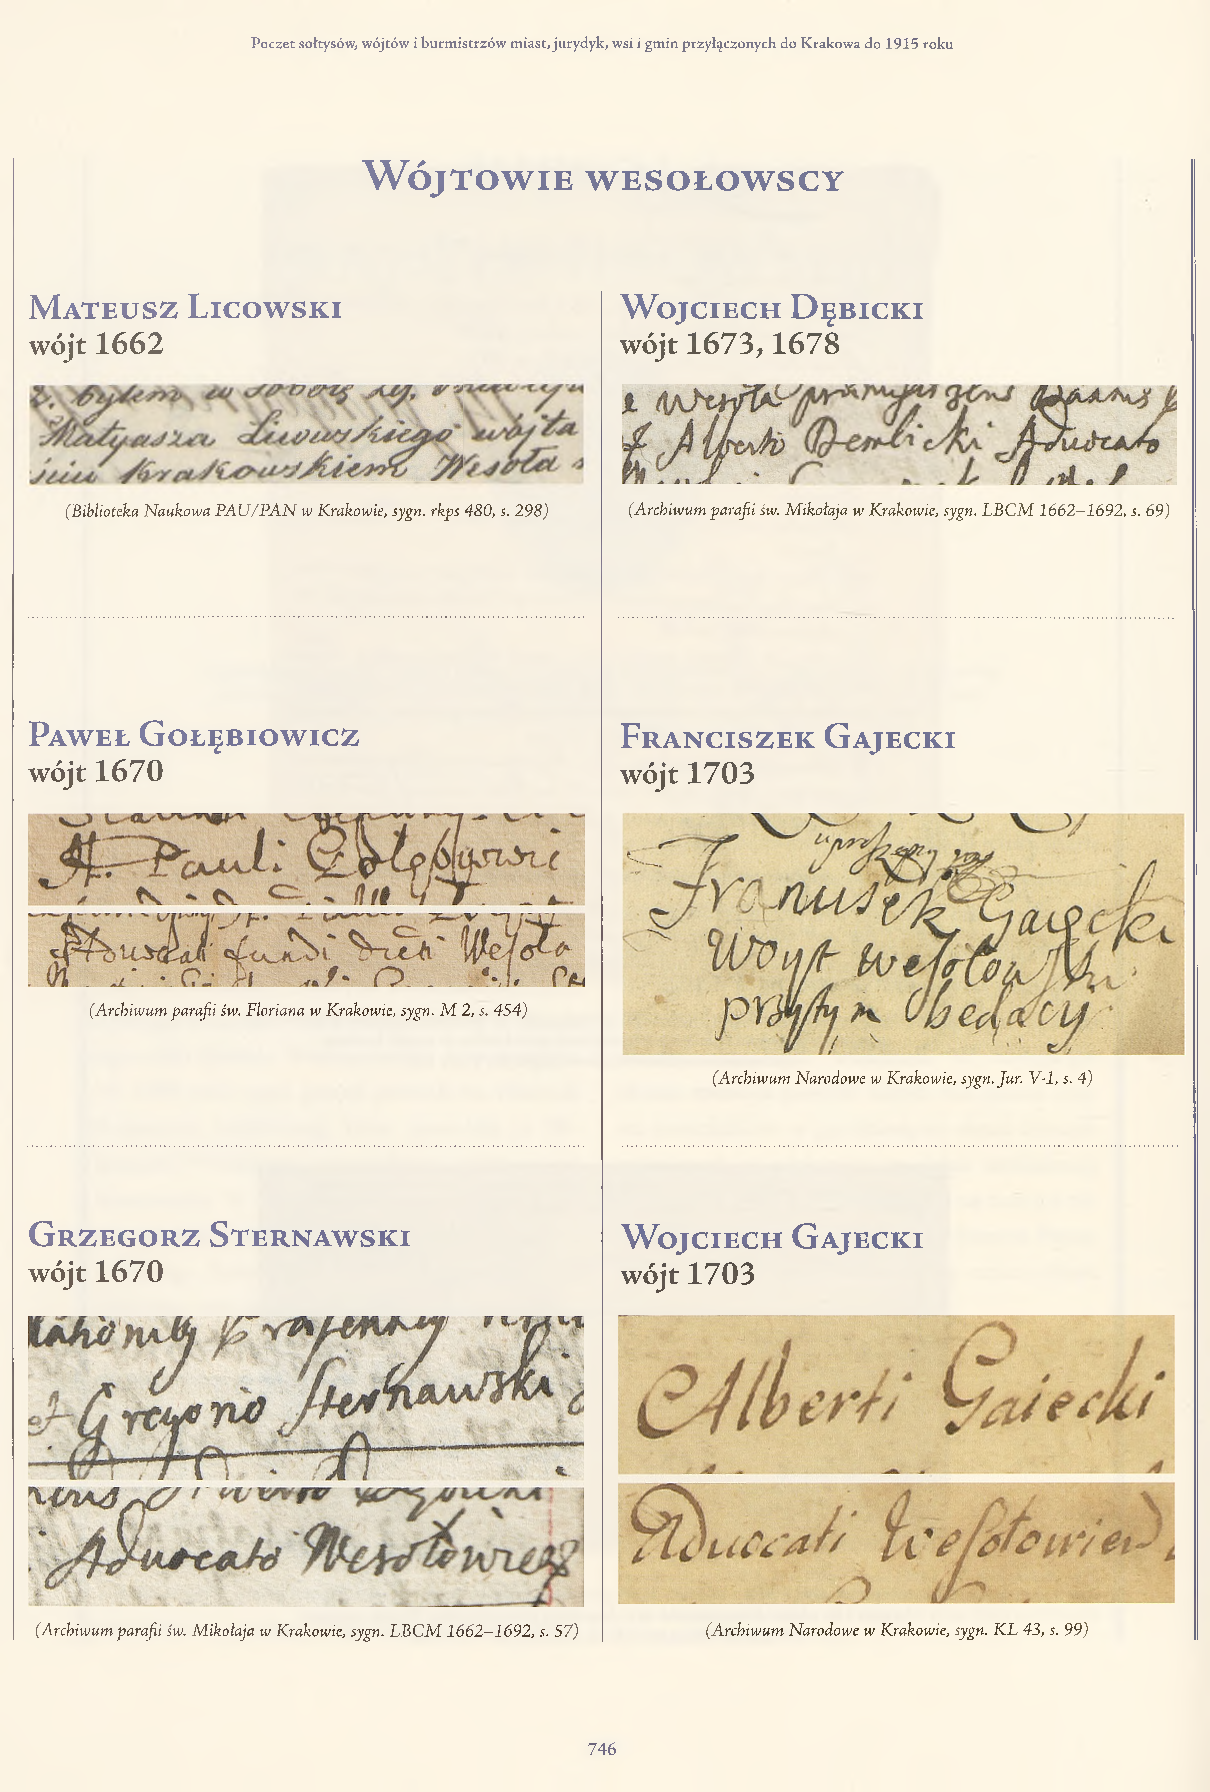 Poczet sołtysów, wójtów i burmistrzów miast, jurydyk, wsi i gmin przyłączonych do Krakowa do 1915 roku
Wójtowie wesołowscy
Mateusz Licowski
wójt 1662
był em w sobotę
Matyasza Licowskiego wójta
Krakowskiem Wesoła
(Biblioteka Naukowa PAU/PAN w Krakowie, sygn. rkps 480, s. 298)
Paweł Gołębiowicz
wójt 1670
H. Pauli Gołębiowic
Aduocati fundi dicti Wesoła
(Archiwum parafii św. Floriana w Krakowie, sygn. M 2, s. 454)
Grzegorz Sternawski
wójt 1670
et Gregorio Sternawski
Aduocato Wesołowien
(Archiwum parafii św. Mikołaja w Krakowie, sygn. LBCM 1662–1692, s. 57)
Wojciech Dębicki
wójt 1673, 1678
Wesoła
Alberto Dembicki Aduocato
(Archiwum parafii św. Mikołaja w Krakowie, sygn. LBCM 1662–1692, s. 69)
Franciszek Gajecki
wójt 1703
Franusek Gaiecki
Woyt wesołowski
przytym bedacy
(Archiwum Narodowe w Krakowie, sygn. Jur. V-1, s. 4)
Wojciech Gajecki
wójt 1703
Alberti Gaiecki
Aduocati Wesołowien
(Archiwum Narodowe w Krakowie, sygn. KL 43, s. 99)
746